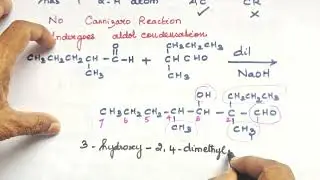 has 1 α-H atom AC CR
✓ X
No Cannizaro Reaction
Undergoes aldol condensation
O CH₂CH₂CH₃
CH₃CH₂CH₂CH-C-H + CH CHO dil
CH₃ CH₃ NaOH
OH CH₂CH₂CH₃
CH₃CH₂CH₂-CH-CH-C-CHO
7 6 5 4 3 2 1
CH₃ CH₃
3-hydroxy-2,4-dimethyl